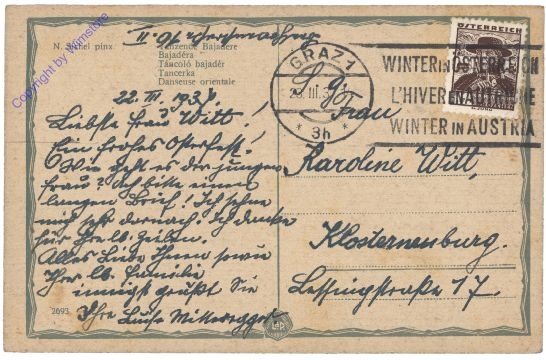 II. 96
N. Michel pinx.
Tanzende Bajadere
Bajadéra
Táncoló bajadér
Tancerka
Danseuse orientale
Copyright by Wimstore
ÖSTERREICH
GRAZ 1
23. III. 37
* 3h *
WINTER IN ÖSTERREICH
L'HIVER EN AUTRICHE
WINTER IN AUSTRIA
22. III. 1937.
Liebste Frau Witt!
Ein frohes Osterfest!
Wie geht es der jungen
Frau? Ich bitte einen
langen Brief! Ich sehne
mich sehr darnach. Ich danke
für Ihre lb. Zeilen.
Alles Liebe Ihnen sowie
Ihrer lb. Familie
innigst grüßt Sie
Ihre Luise
Frau
Karoline Witt,
Klosterneuburg.
Lessingstraße 17.
2693